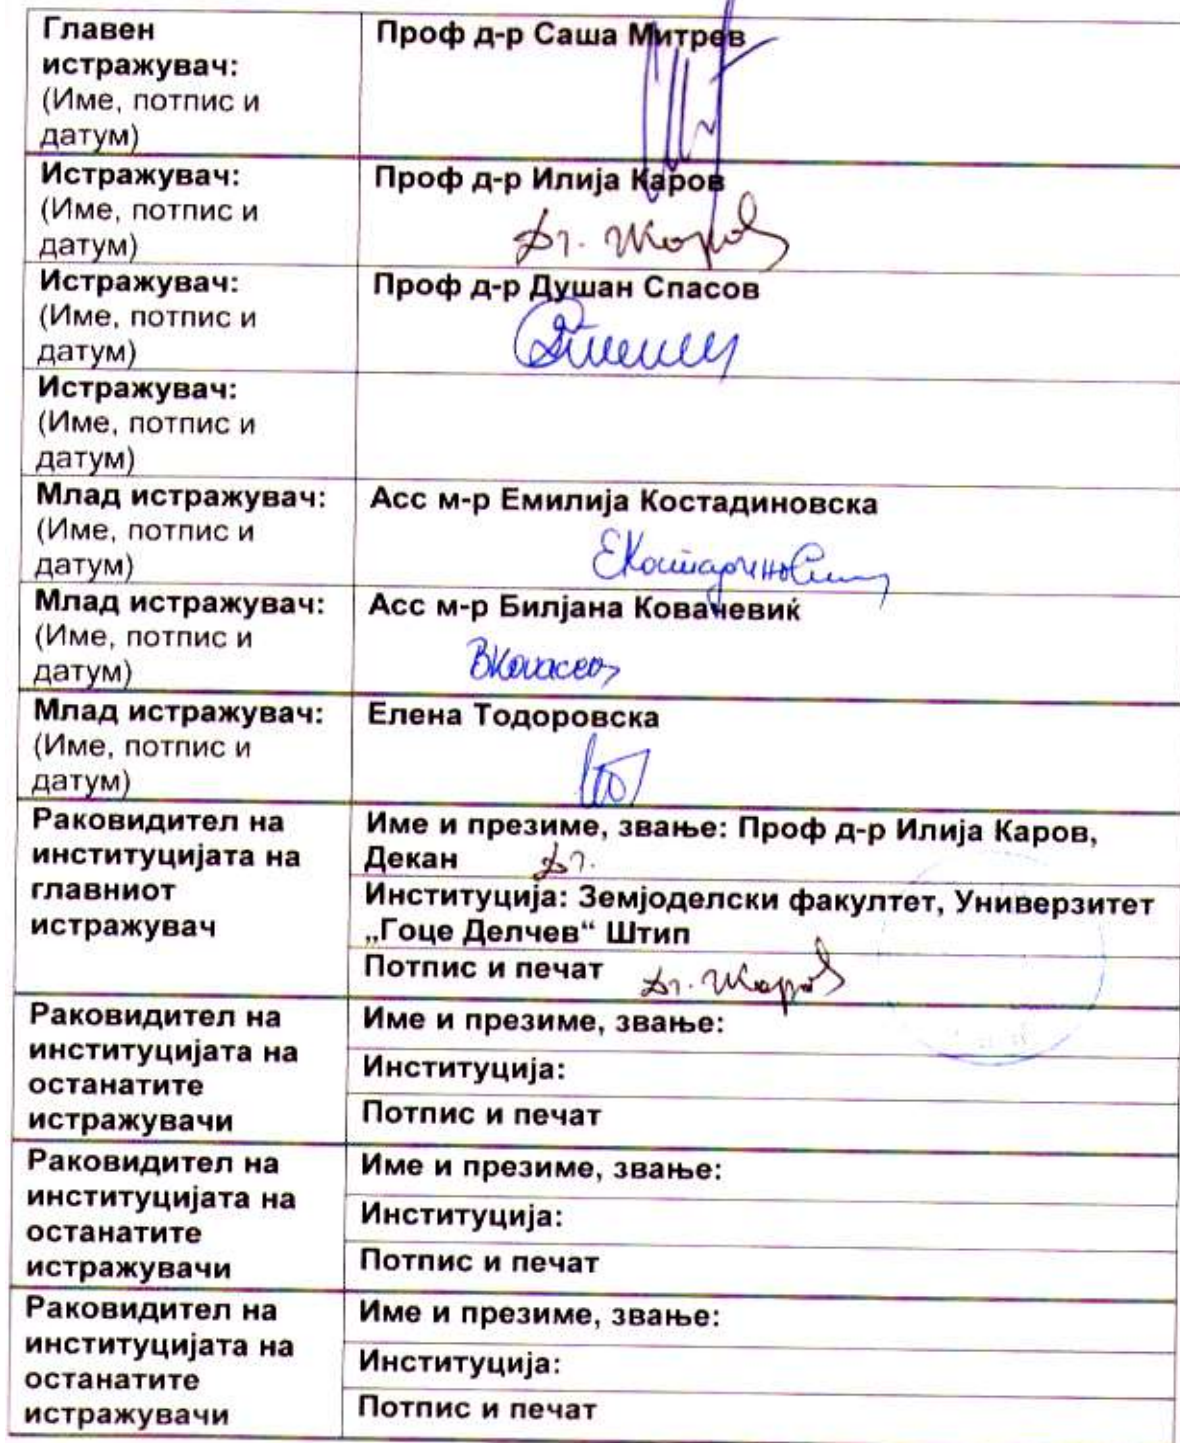 Главен
истражувач:
(Име, потпис и
датум)
Проф д-р Саша Митрев
Истражувач:
(Име, потпис и
датум)
Проф д-р Илија Каров
Истражувач:
(Име, потпис и
датум)
Проф д-р Душан Спасов
Истражувач:
(Име, потпис и
датум)
Млад истражувач:
(Име, потпис и
датум)
Асс м-р Емилија Костадиновска
Млад истражувач:
(Име, потпис и
датум)
Асс м-р Билјана Ковачевиќ
Млад истражувач:
(Име, потпис и
датум)
Елена Тодоровска
Раковидител на
институцијата на
главниот
истражувач
Име и презиме, звање: Проф д-р Илија Каров,
Декан
Институција: Земјоделски факултет, Универзитет
„Гоце Делчев“ Штип
Потпис и печат
Раковидител на
институцијата на
останатите
истражувачи
Име и презиме, звање:
Институција:
Потпис и печат
Раковидител на
институцијата на
останатите
истражувачи
Име и презиме, звање:
Институција:
Потпис и печат
Раковидител на
институцијата на
останатите
истражувачи
Име и презиме, звање:
Институција:
Потпис и печат